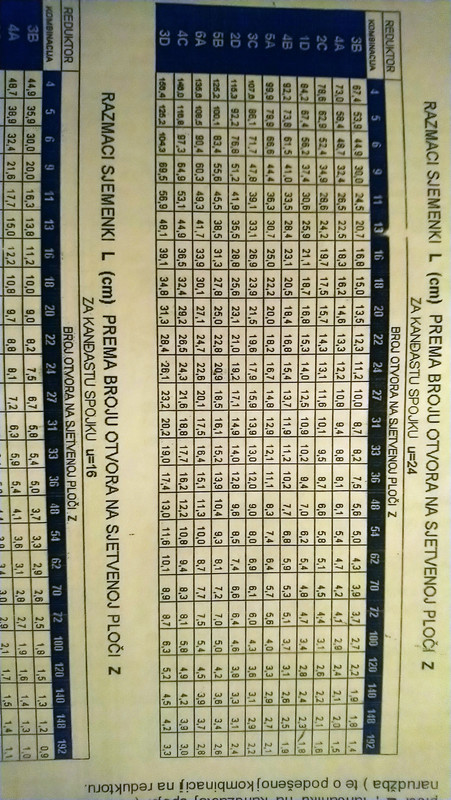 narudžba ) te o podešenoj kombinaciji na reduktoru.
RAZMACI SJEMENKI L (cm) PREMA BROJU OTVORA NA SJETVENOJ PLOČI Z
ZA KANDASTU SPOJKU u=24
REDUKTOR BROJ OTVORA NA SJETVENOJ PLOČI Z
KOMBINACIJA 4 5 6 9 11 13 16 18 20 22 24 27 31 33 36 48 54 62 70 72 100 120 140 148 192
3B 67,4 53,9 44,9 30,0 24,5 20,7 16,8 15,0 13,5 12,3 11,2 10,0 8,7 8,2 7,5 5,6 5,0 4,3 3,9 3,7 2,7 2,2 1,9 1,8 1,4
4A 73,0 58,4 48,7 32,4 26,5 22,5 18,3 16,2 14,6 13,3 12,2 10,8 9,4 8,8 8,1 6,1 5,4 4,7 4,2 4,1 2,9 2,4 2,1 2,0 1,5
2C 78,6 62,9 52,4 34,9 28,6 24,2 19,7 17,5 15,7 14,3 13,1 11,6 10,1 9,5 8,7 6,6 5,8 5,1 4,5 4,4 3,1 2,6 2,2 2,1 1,6
1D 84,2 67,4 56,2 37,4 30,6 25,9 21,1 18,7 16,8 15,3 14,0 12,5 10,9 10,2 9,4 7,0 6,2 5,4 4,8 4,7 3,4 2,8 2,4 2,3 1,8
4B 92,2 73,8 61,5 41,0 33,5 28,4 23,1 20,5 18,4 16,8 15,4 13,7 11,9 11,2 10,2 7,7 6,8 5,9 5,3 5,1 3,7 3,1 2,6 2,5 1,9
5A 99,9 79,9 66,6 44,4 36,3 30,7 25,0 22,2 20,0 18,2 16,7 14,8 12,9 12,1 11,1 8,3 7,4 6,4 5,7 5,6 4,0 3,3 2,9 2,7 2,1
3C 107,6 86,1 71,7 47,8 39,1 33,1 26,9 23,9 21,5 19,6 17,9 15,9 13,9 13,0 12,0 9,0 8,0 6,9 6,1 6,0 4,3 3,6 3,1 2,9 2,2
2D 115,3 92,2 76,8 51,2 41,9 35,5 28,8 25,6 23,1 21,0 19,2 17,1 14,9 14,0 12,8 9,6 8,5 7,4 6,6 6,4 4,6 3,8 3,3 3,1 2,4
5B 125,2 100,1 83,4 55,6 45,5 38,5 31,3 27,8 25,0 22,8 20,9 18,5 16,1 15,2 13,9 10,4 9,3 8,1 7,2 7,0 5,0 4,2 3,6 3,4 2,6
6A 135,6 108,5 90,4 60,3 49,3 41,7 33,9 30,1 27,1 24,7 22,6 20,1 17,5 16,4 15,1 11,3 10,0 8,7 7,7 7,5 5,4 4,5 3,9 3,7 2,8
4C 146,0 116,8 97,3 64,9 53,1 44,9 36,5 32,4 29,2 26,5 24,3 21,6 18,8 17,7 16,2 12,2 10,8 9,4 8,3 8,1 5,8 4,9 4,2 3,9 3,0
3D 156,4 125,2 104,3 69,5 56,9 48,1 39,1 34,8 31,3 28,4 26,1 23,2 20,2 19,0 17,4 13,0 11,6 10,1 8,9 8,7 6,3 5,2 4,5 4,2 3,3
RAZMACI SJEMENKI L (cm) PREMA BROJU OTVORA NA SJETVENOJ PLOČI Z
ZA KANDASTU SPOJKU u=16
REDUKTOR BROJ OTVORA NA SJETVENOJ PLOČI Z
KOMBINACIJA 4 5 6 9 11 13 16 18 20 22 24 27 31 33 36 48 54 62 70 72 100 120 140 148 192
3B 44,9 35,9 30,0 20,0 16,3 13,8 11,2 10,0 9,0 8,2 7,5 6,7 5,8 5,4 5,0 3,7 3,3 2,9 2,6 2,5 1,8 1,5 1,3 1,2 0,9
4A 48,7 38,9 32,4 21,6 17,7 15,0 12,2 10,8 9,7 8,8 8,1 7,2 6,3 5,9 5,4 4,1 3,6 3,1 2,8 2,7 1,9 1,6 1,4 1,3 1,0
2,9 2,1 1,7 1,5 1,4 1,1